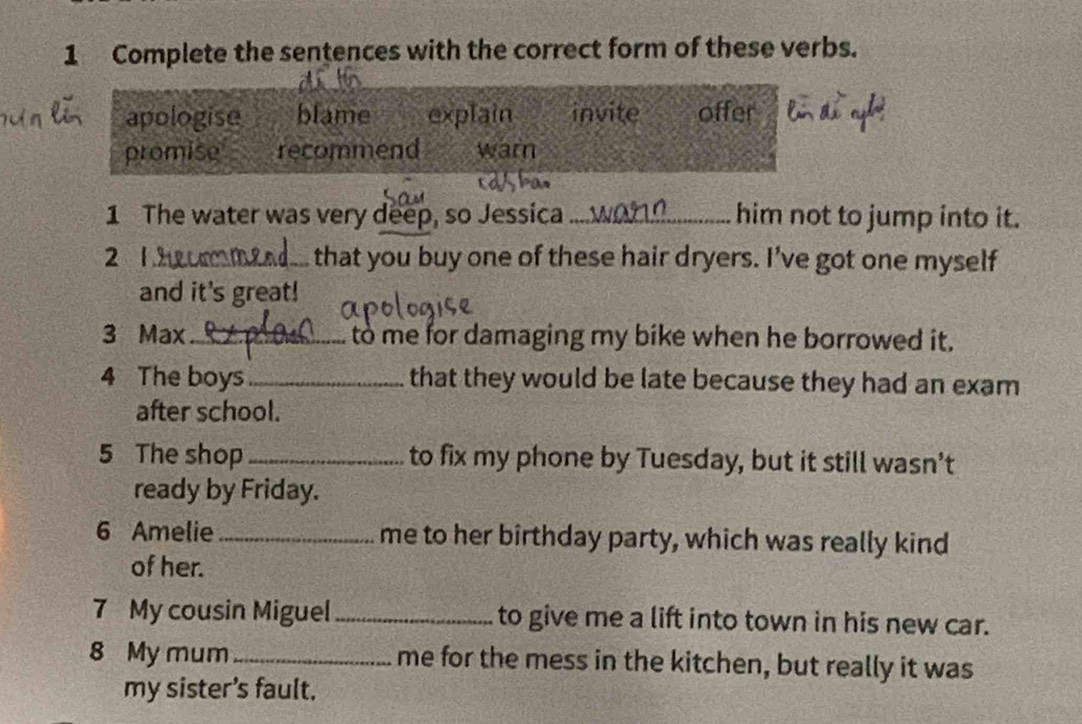 1 Complete the sentences with the correct form of these verbs.
apologise blame explain invite offer
promise recommend warn
sâu
1 The water was very deep, so Jessica warn him not to jump into it.
2 I that you buy one of these hair dryers. I've got one myself
and it's great!
apologise
3 Max explain to me for damaging my bike when he borrowed it.
4 The boys ............ that they would be late because they had an exam
after school.
5 The shop ............ to fix my phone by Tuesday, but it still wasn't
ready by Friday.
6 Amelie ............ me to her birthday party, which was really kind
of her.
7 My cousin Miguel ............ to give me a lift into town in his new car.
8 My mum ............ me for the mess in the kitchen, but really it was
my sister's fault.